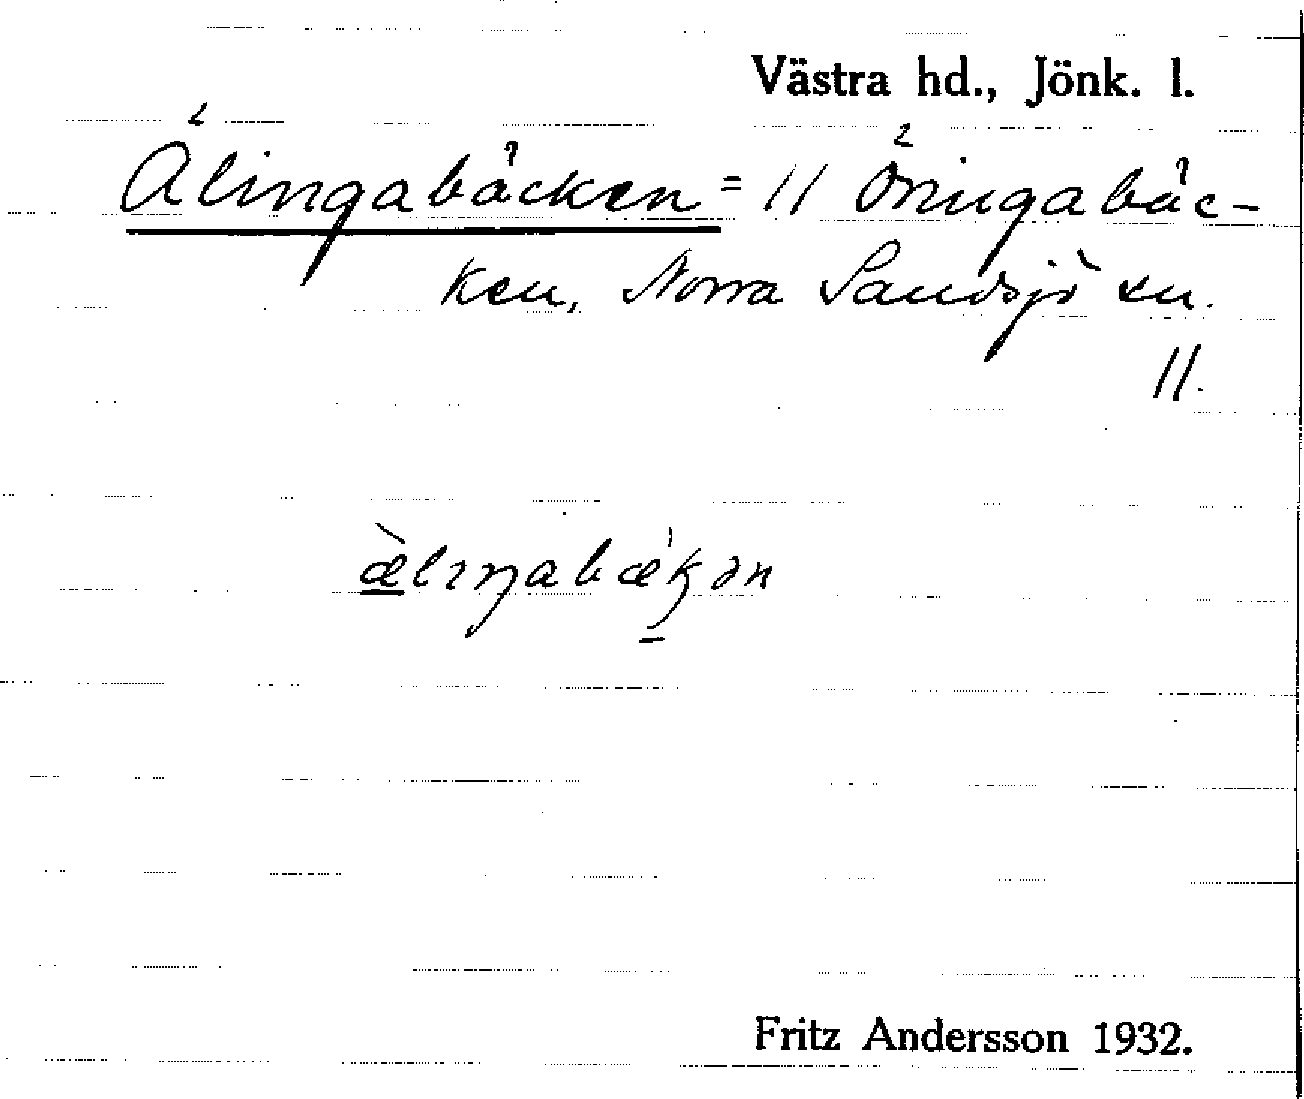 Västra hd., Jönk. l.
Älingabäcken = // Öningabäc-
ken, Norra Sandsjö sn.
//.
æ̀lıŋabǽkən
Fritz Andersson 1932.